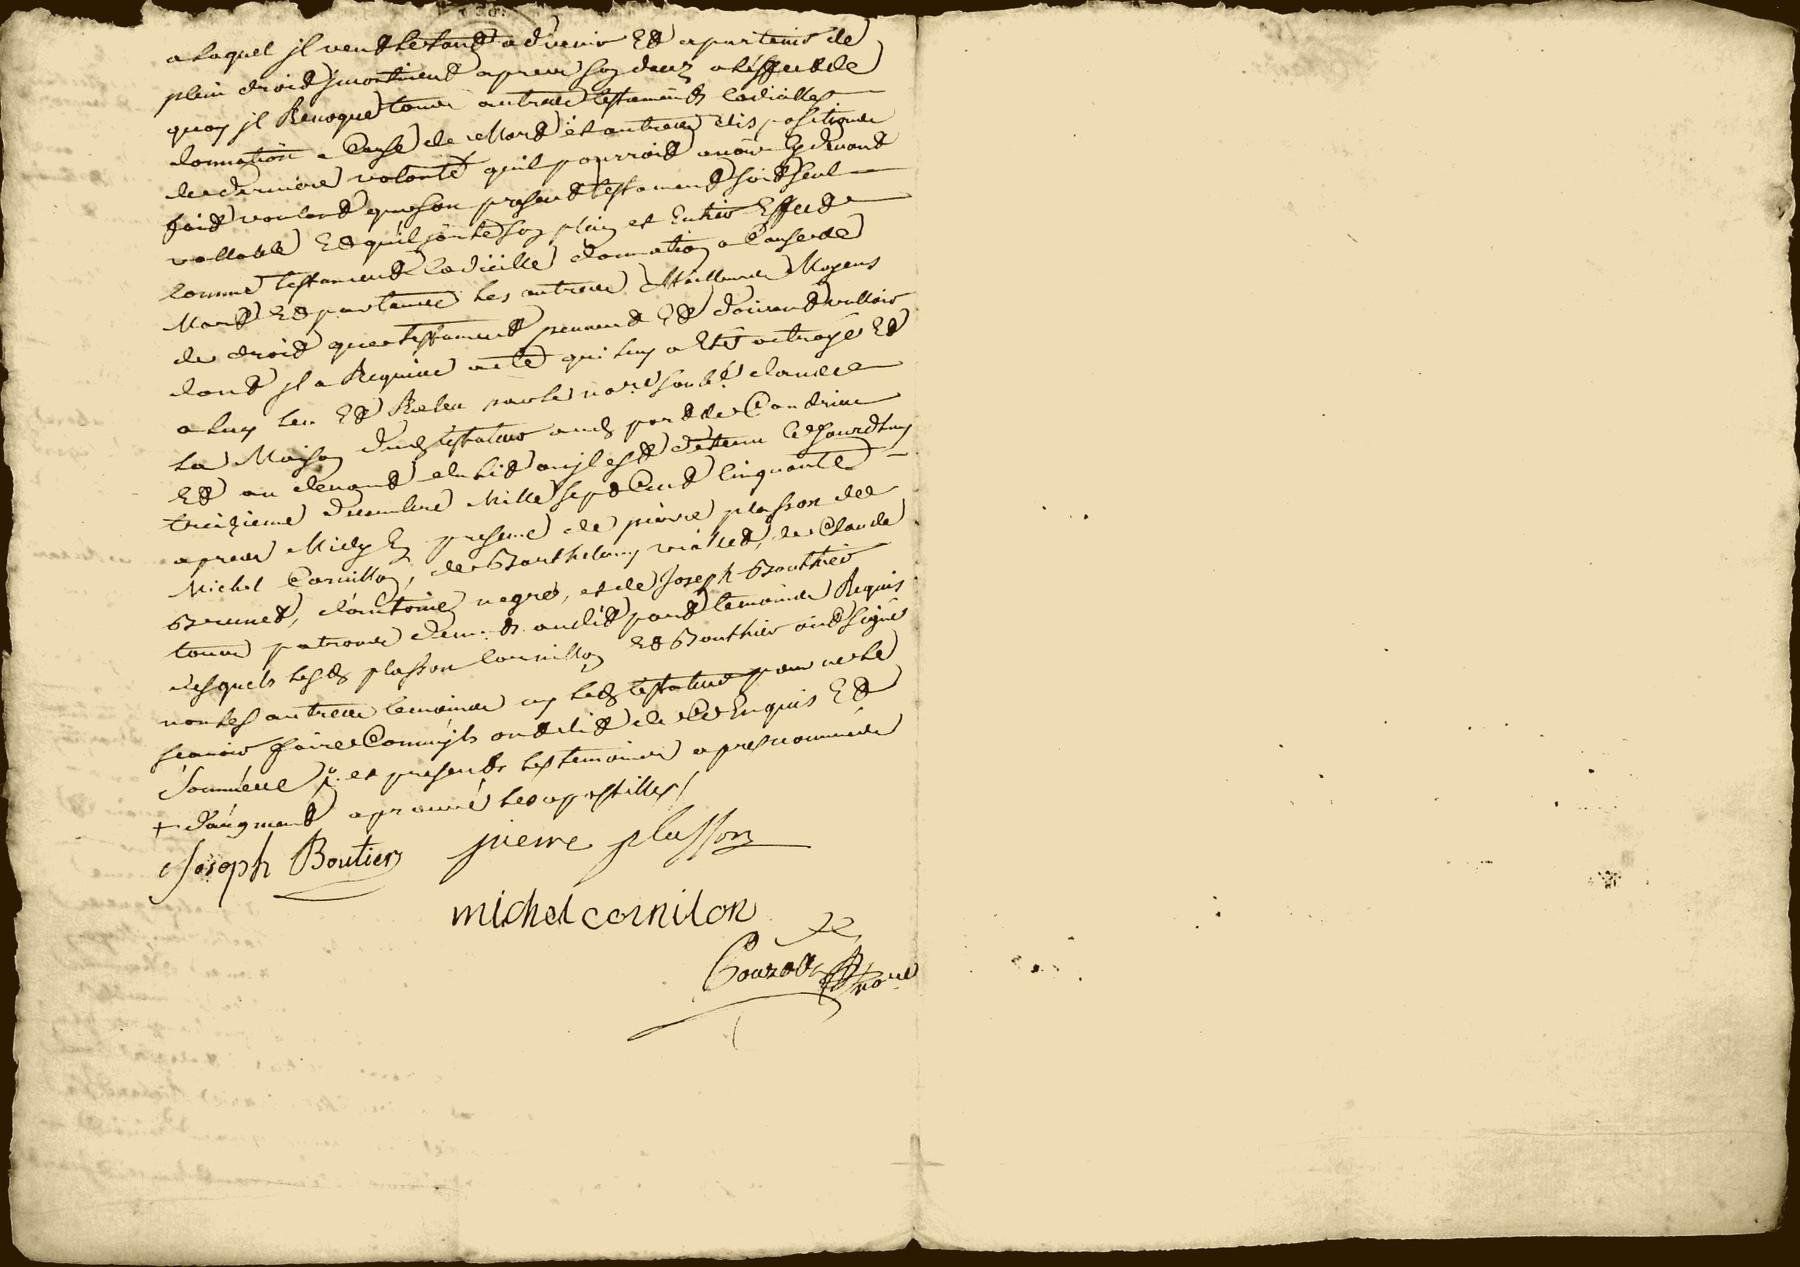 a laquel jl veut le tout advenir Et apartenir de
plein droit jncontinent apres son deces a l'effect de
quoy jl Revoque tous autres testaments codicilles
donnation a Cause de Mort et autres dispositions
de derniere volonté qu'il pourroit avoir cy devant
fait voulant que son present testament soit seul
vallable Et qu'il sorte son plein et Entier Effect
comme testament Codicille donnation a Cause de
Mort Et par tous les autres Meilleurs Moyens
de droit que testament peuvent Et doivent valloir
dont jl a Requis acte qui luy a Eté octroyé Et
a luy leu Et Releu par le no.re soub.né dans
la Maison dud testateur aud port de Condrieu
Et au devant du lit ou jl est detenu Ce Jourdhuy
treizieme decembre Mille sept Cent Cinquante
apres Midy En presence de pierre plasson de
Michel Cornillon, de Barthelemy viallet, de Claude
Brunet, d'antoine negre, et de Joseph Bouthier
tous patrons dem.ts audit port temoins Requis
desquels lesd plasson Cornillon Et Bouthier ont signé
non les autres temoins ny led testateur pour ne le
scavoir faire Comm'jls ont dit de Ce Enquis Et
Sommés et presents les temoins apres nommés
+ d'augment aprouvé les apostilles /
Joseph Boutier pierre plasson
michel cornilon